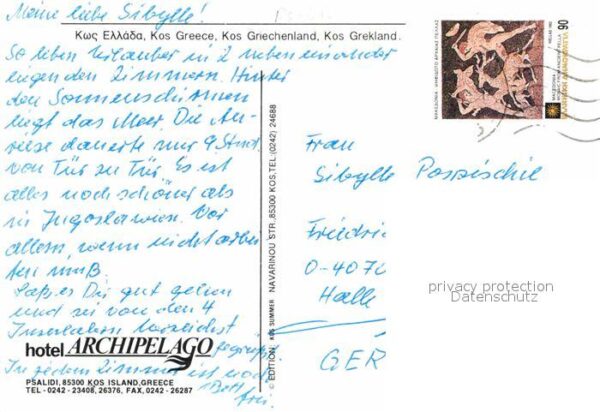 Meine liebe Sibylle!
Κως Ελλάδα, Kos Greece, Kos Griechenland, Kos Grekland.
So leben Urlauber in 2 nebeneinander
liegenden Zimmern. Hinter
den Sonnenschirmen
liegt das Meer. Die An-
reise dauerte nur 9 Stund.
von Tür zu Tür. Es ist
alles noch schöner als
in Jugoslawien. Vor
allem, wenn nicht arbei-
ten muß.
Laß es Dir gut gehen
und sei von den 4
herzlichst
gegrüßt.
In jedem Zimmer ist noch
1 Bett
frei.
hotel ARCHIPELAGO
PSALIDI, 85300 KOS ISLAND, GREECE
TEL-0242 - 23408, 26376, FAX-0242 - 26287
© EDITION: KOS SUMMER NAVARINOU STR., 85300 KOS, TEL: (0242) 24688
90
HELLAS 1992
Frau
Sibylle Pospischil
Friedri
0-4070
Halle
GER
privacy protection
Datenschutz